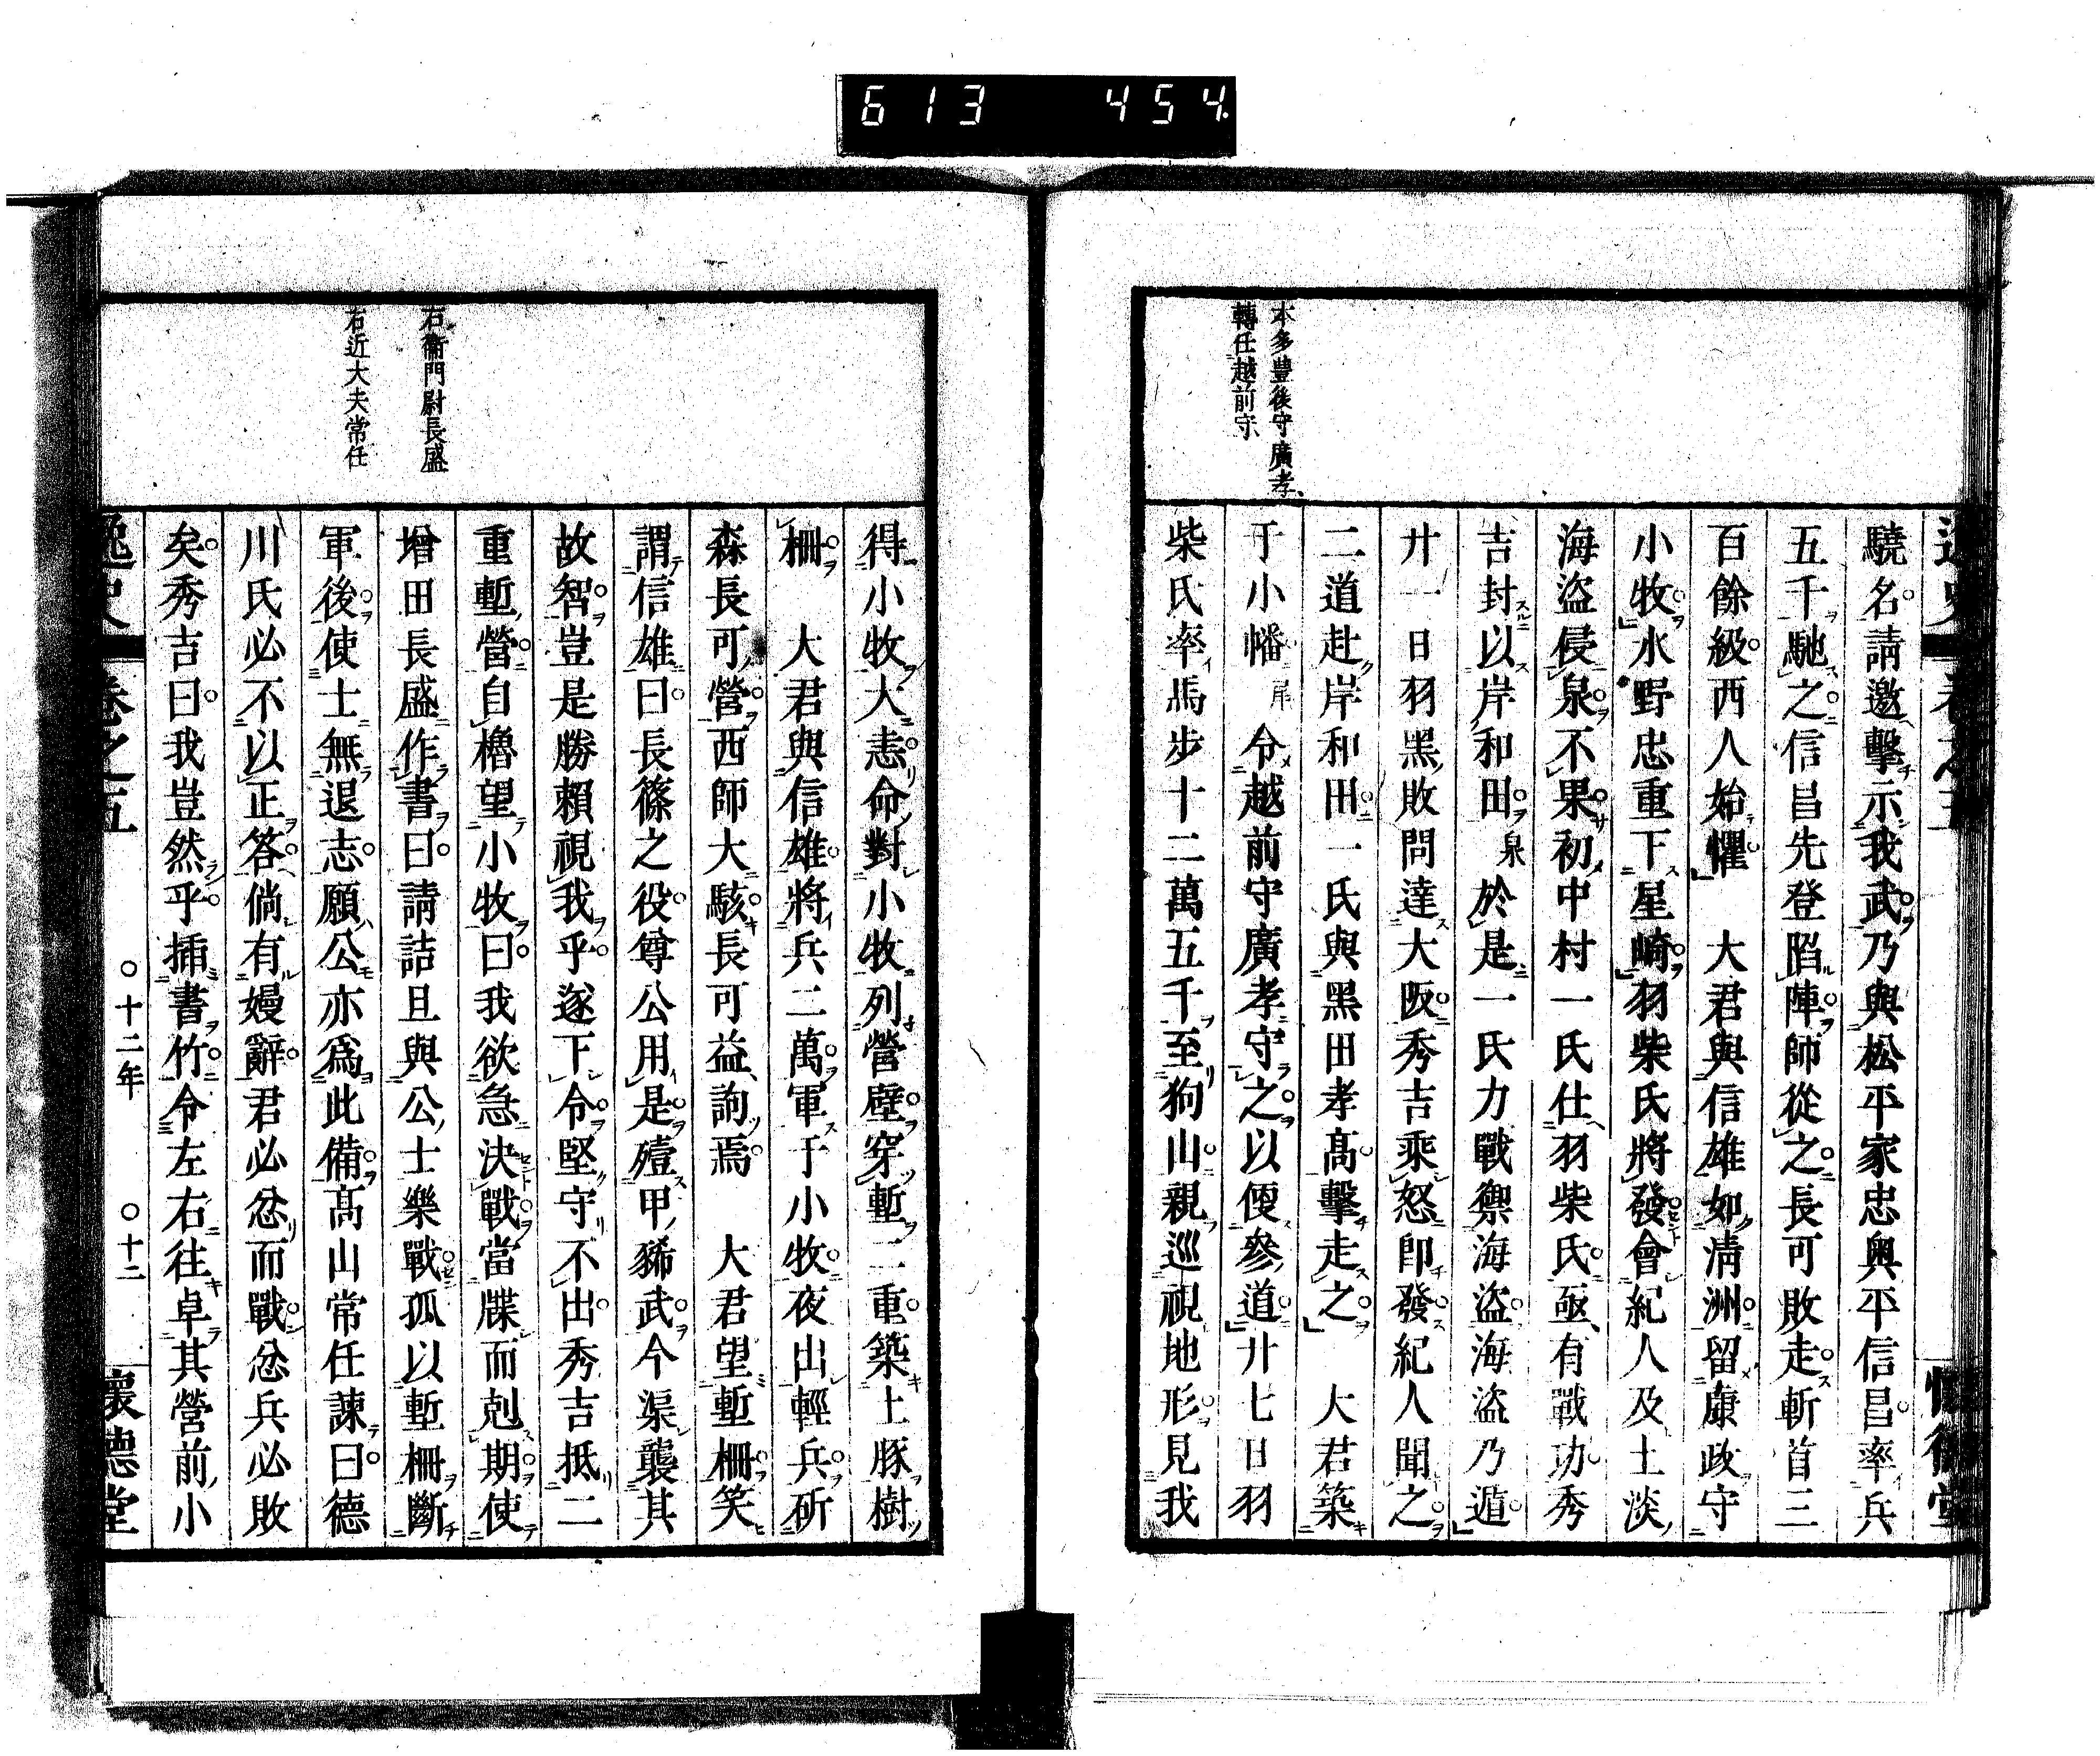 613 454
本多豊後守廣孝、
轉任越前守、
驍名請邀擊示我武乃與松平家忠與平信昌率兵
五千馳之信昌先登陷陣師從之長可敗走斬首三
百餘級西人始懼　大君與信雄如清洲留康政守
小牧水野忠重下星崎羽柴氏將發會紀人及土淡
海盜侵泉不果初中村一氏仕羽柴氏亟有戰功秀
吉封以岸和田泉於是一氏力戰禦海盜海盜乃遁
廿一日羽黑敗問達大阪秀吉乘怒即發紀人聞之
二道赴岸和田一氏與黑田孝高擊走之　大君築
于小幡尾令越前守廣孝守之以便參道廿七日羽
柴氏率馬步十二萬五千至狗山親巡視地形見我
右衞門尉長盛
右近大夫常任
得小牧大恚命對小牧列營壁穿塹二重築土豚樹
柵　大君與信雄將兵二萬軍于小牧夜出輕兵斫
森長可營西師大駭長可益訽焉　大君望塹柵笑
謂信雄曰長篠之役尊公用是殪甲豨武今渠襲其
故智豈是勝賴視我乎遂下令堅守不出秀吉抵二
重塹營自櫓望小牧曰我欲急決戰當牒而剋期使
增田長盛作書曰請詰旦與公士樂戰孤以塹柵斷
軍後使士無退志願公亦爲此備高山常任諫曰德
川氏必不以正答倘有嫚辭君必忿而戰忿兵必敗
矣秀吉曰我豈然乎插書竹令左右往卓其營前小
逸史　卷之五　〇十二年　〇十二　懷德堂